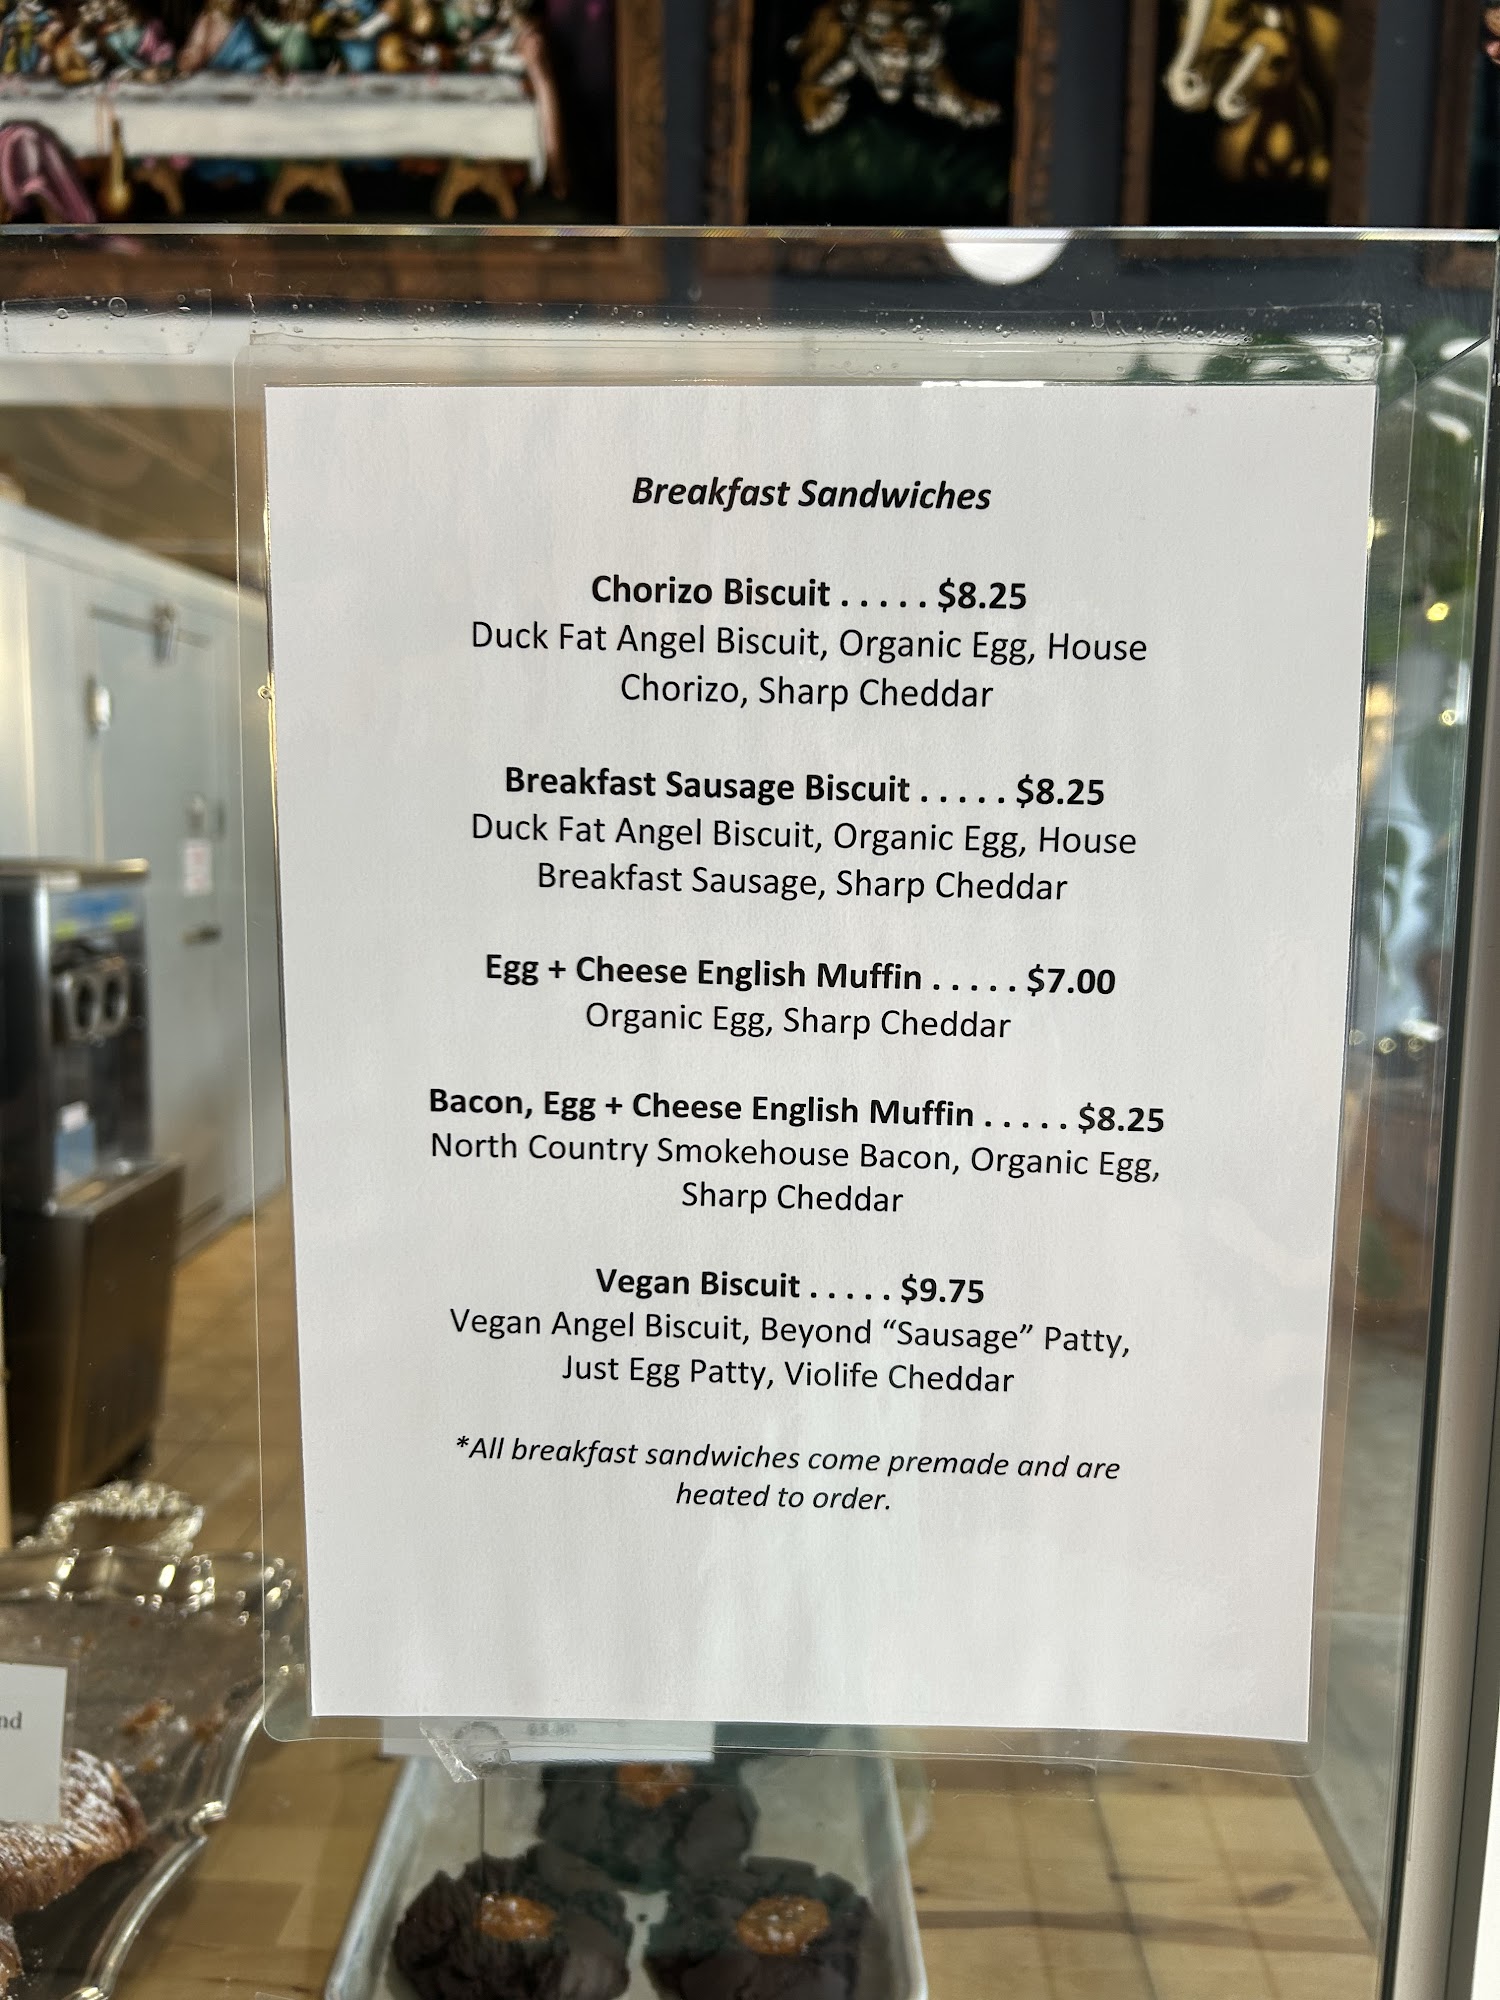 Breakfast Sandwiches
Chorizo Biscuit . . . . . $8.25
Duck Fat Angel Biscuit, Organic Egg, House
Chorizo, Sharp Cheddar
Breakfast Sausage Biscuit . . . . . $8.25
Duck Fat Angel Biscuit, Organic Egg, House
Breakfast Sausage, Sharp Cheddar
Egg + Cheese English Muffin . . . . . $7.00
Organic Egg, Sharp Cheddar
Bacon, Egg + Cheese English Muffin . . . . . $8.25
North Country Smokehouse Bacon, Organic Egg,
Sharp Cheddar
Vegan Biscuit . . . . . $9.75
Vegan Angel Biscuit, Beyond “Sausage” Patty,
Just Egg Patty, Violife Cheddar
*All breakfast sandwiches come premade and are
heated to order.